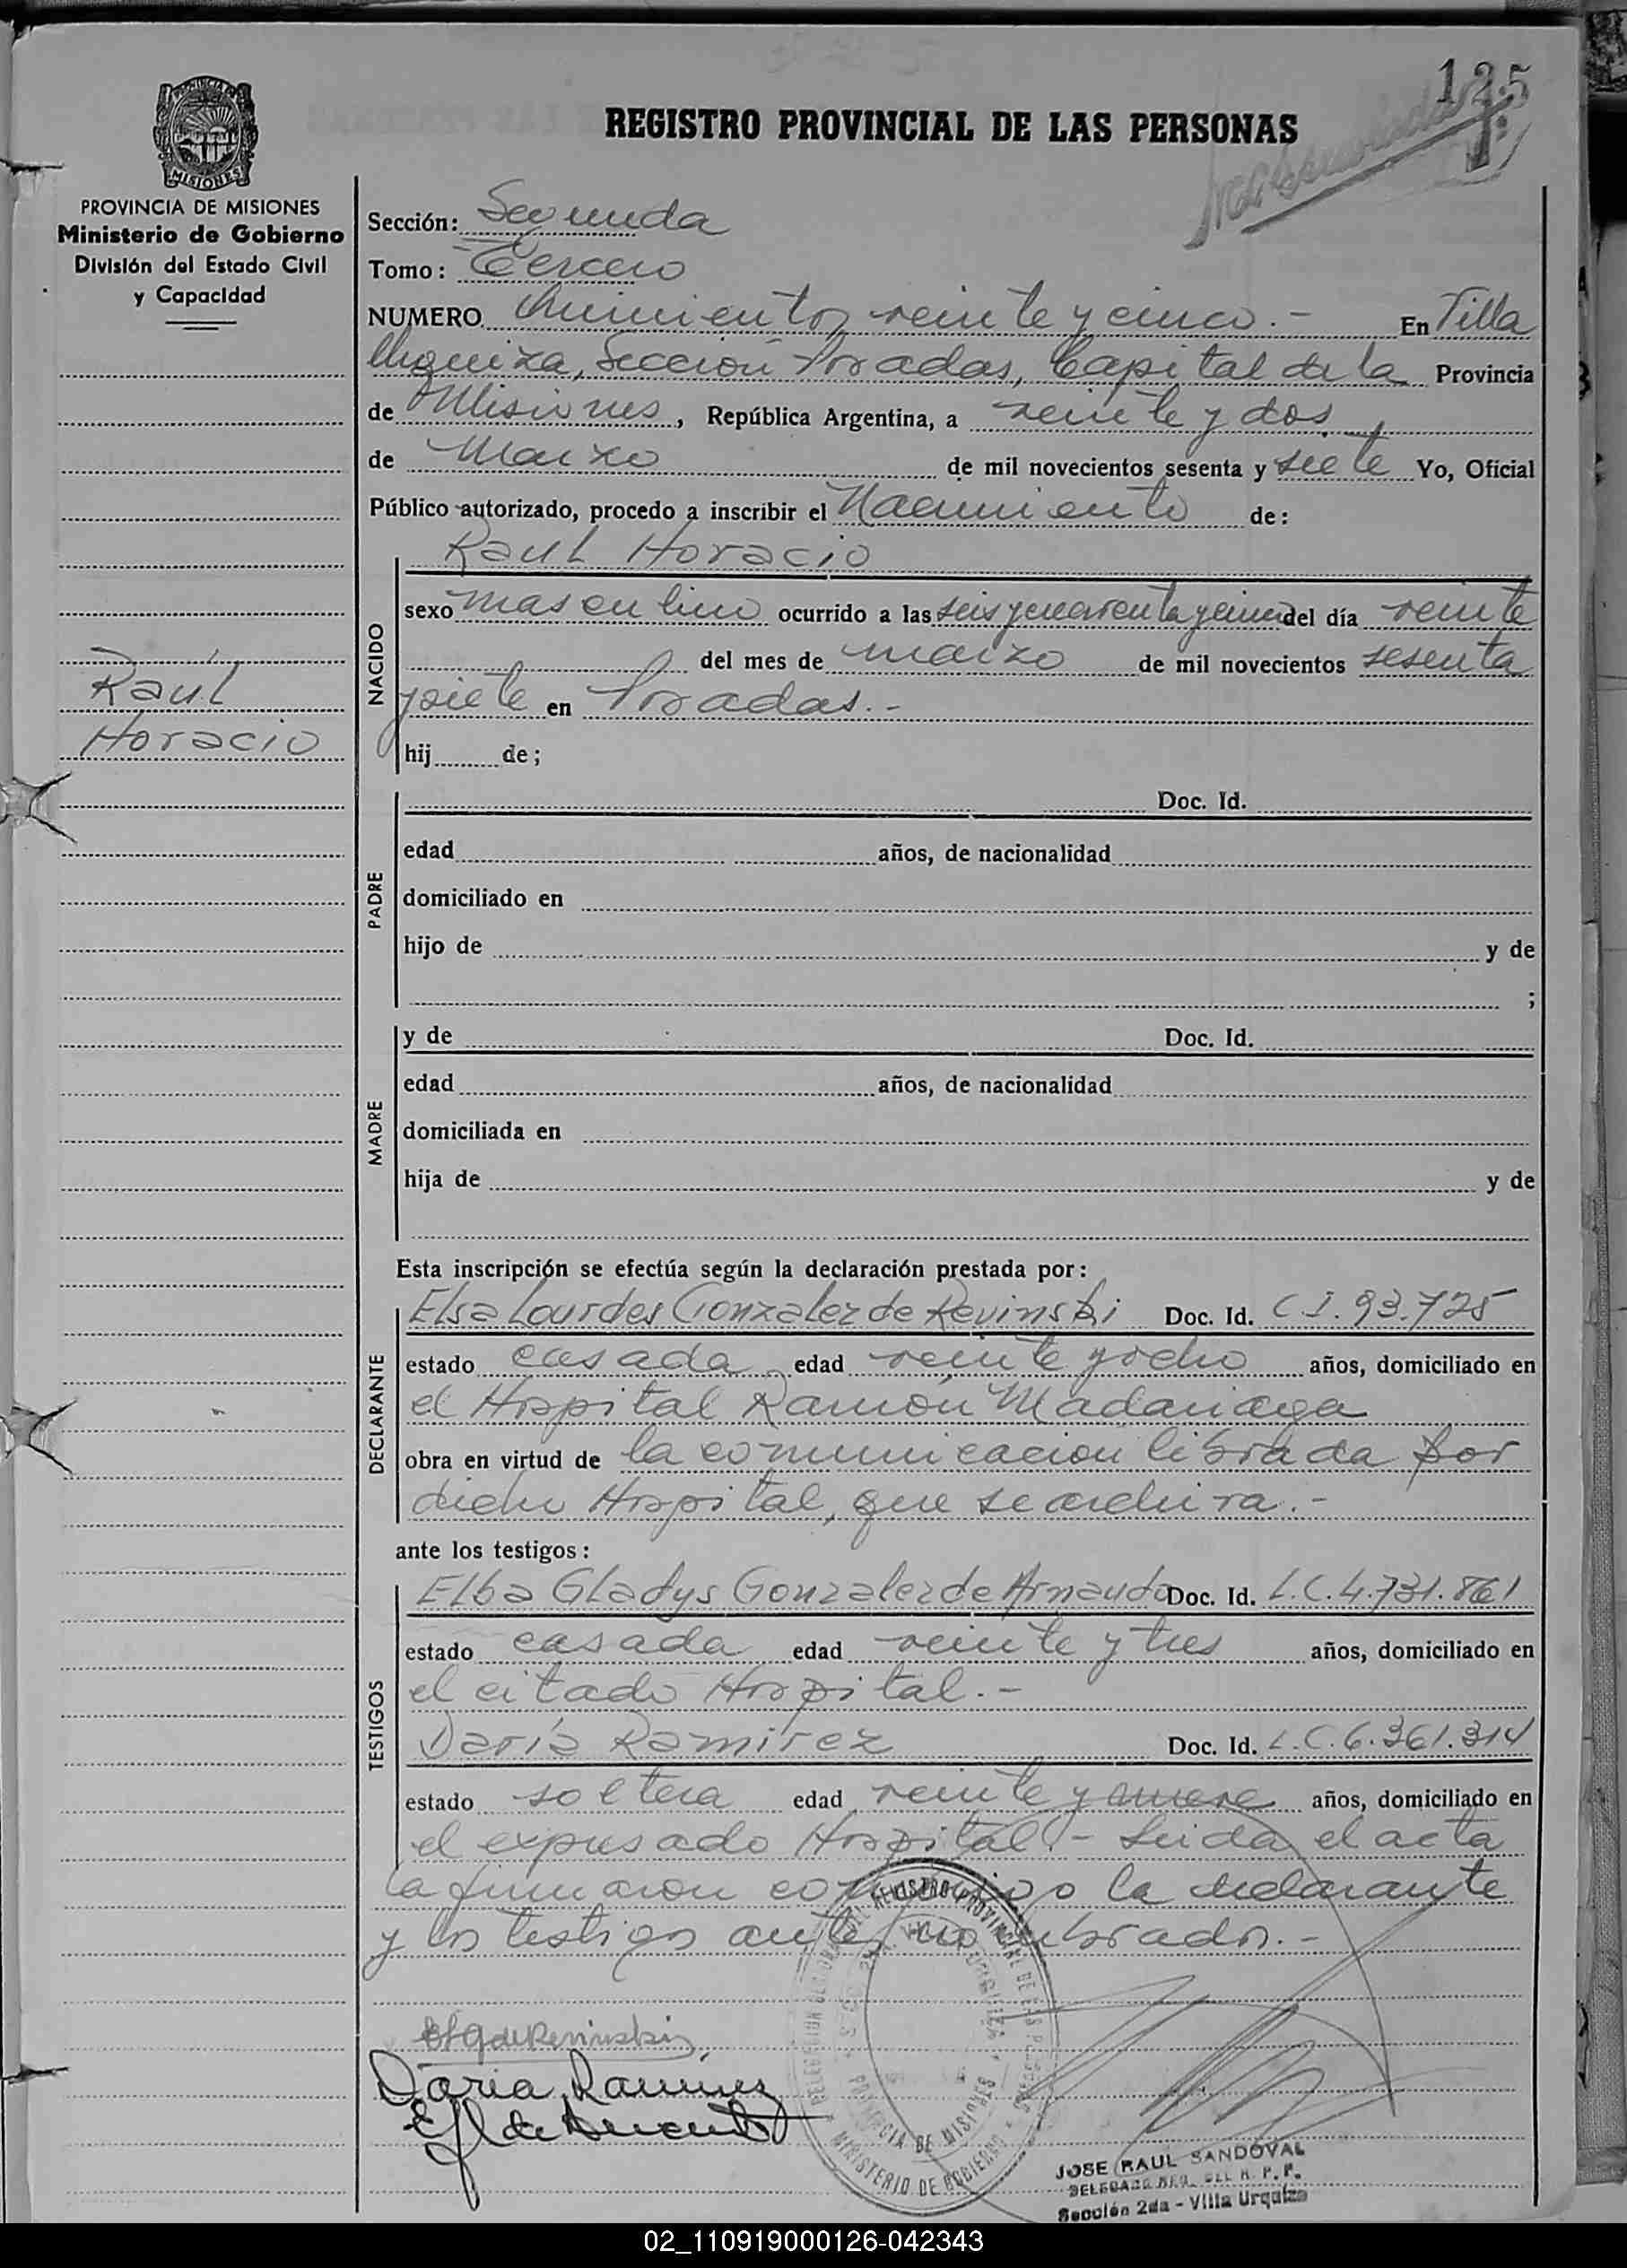 125
REGISTRO PROVINCIAL DE LAS PERSONAS
MISIONES
PROVINCIA DE MISIONES
Ministerio de Gobierno
División del Estado Civil
y Capacidad
Sección: Segunda
Tomo: Tercero
NUMERO Quinientos veinte y cinco.- En Villa
Urquiza, Sección Posadas, Capital de la Provincia
de Misiones, República Argentina, a veinte y dos
de Marzo de mil novecientos sesenta y siete Yo, Oficial
Público autorizado, procedo a inscribir el Nacimiento de:
Raul Horacio
NACIDO
sexo masculino ocurrido a las seis y cuarenta y cinco del día veinte
del mes de marzo de mil novecientos sesenta
y siete en Posadas.-
hij de;
Raúl
Horacio
PADRE
Doc. Id.
edad años, de nacionalidad
domiciliado en
hijo de y de
;
MADRE
y de Doc. Id.
edad años, de nacionalidad
domiciliada en
hija de y de
Esta inscripción se efectúa según la declaración prestada por:
DECLARANTE
Elsa Lourdes Gonzalez de Revinski Doc. Id. C I. 93.725
estado casada edad veinte y ocho años, domiciliado en
el Hospital Ramón Madariaga
obra en virtud de la comunicacion librada por
dicho Hospital, que se archiva.-
ante los testigos:
TESTIGOS
Elba Gladys Gonzalez de Arnaudo Doc. Id. L.C. 4.731.861
estado casada edad veinte y tres años, domiciliado en
el citado Hospital.-
Daría Ramirez Doc. Id. L.C. 6.361.314
estado soltera edad veinte y nueve años, domiciliado en
el expresado Hospital.- Leida el acta
la firmaron conmigo la declarante
y los testigos ante nombrados.-
Daria Ramirez
REGISTRO PROVINCIAL DE LAS PERSONAS
MINISTERIO DE GOBIERNO
PROVINCIA DE MISIONES
JOSE RAUL SANDOVAL
DELEGADO REG. DEL R. P. P.
Sección 2da - Villa Urquiza
02_110919000126-042343